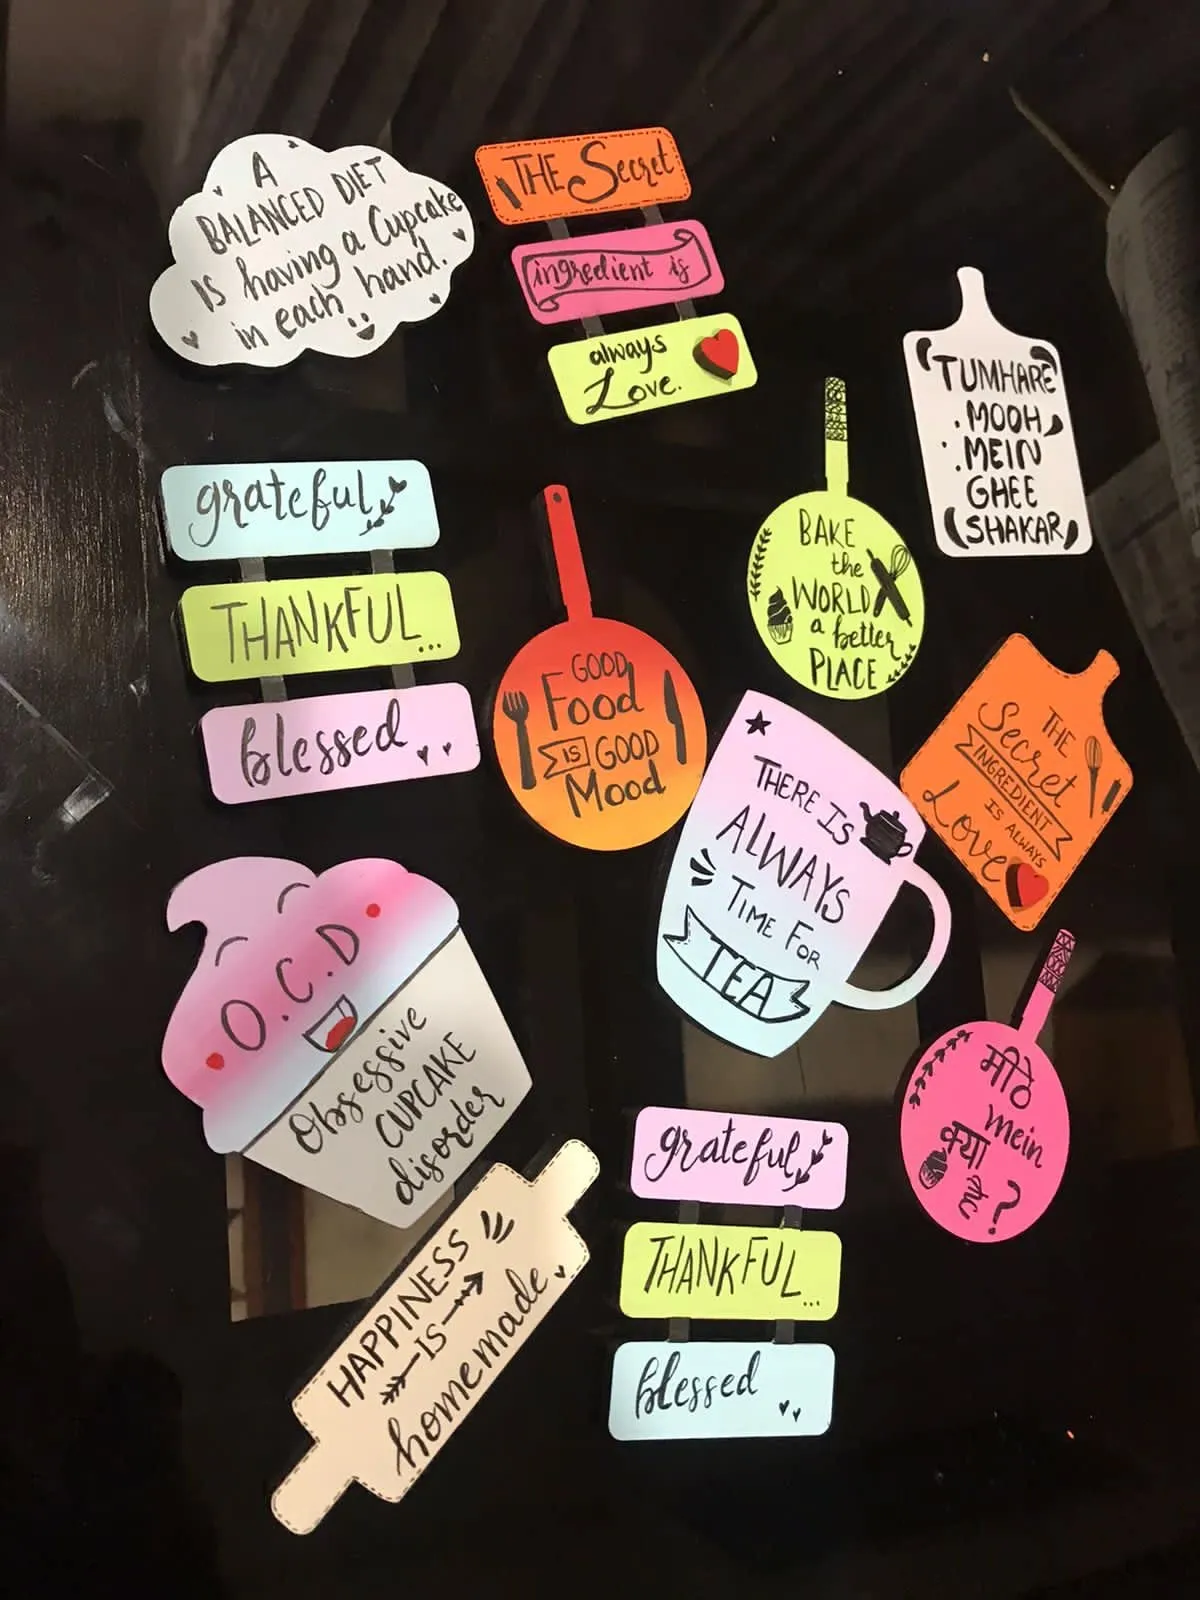 A
BALANCED DIET
IS having a Cupcake
in each hand.
THE Secret
ingredient is
always
Love.
TUMHARE
MOOH
MEIN
GHEE
SHAKAR
grateful
THANKFUL...
blessed
GOOD
Food
IS GOOD
Mood
BAKE
the
WORLD
a better
PLACE
THE
Secret
INGREDIENT
IS ALWAYS
Love
THERE IS
ALWAYS
TIME FOR
TEA
O.C.D
Obsessive
CUPCAKE
disorder
मीठे
mein
क्या
है ?
HAPPINESS
IS
homemade
grateful
THANKFUL...
blessed